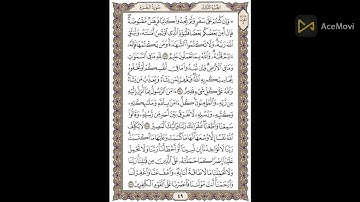 الجزء الثالث
سورة البقرة
AceMovi
۞ وَإِن كُنتُمْ عَلَىٰ سَفَرٍ وَلَمْ تَجِدُوا۟ كَاتِبًا فَرِهَٰنٌ مَّقْبُوضَةٌ
فَإِنْ أَمِنَ بَعْضُكُم بَعْضًا فَلْيُؤَدِّ ٱلَّذِى ٱؤْتُمِنَ أَمَٰنَتَهُۥ وَلْيَتَّقِ
ٱللَّهَ رَبَّهُۥ وَلَا تَكْتُمُوا۟ ٱلشَّهَٰدَةَ وَمَن يَكْتُمْهَا فَإِنَّهُۥٓ
ءَاثِمٌ قَلْبُهُۥ وَٱللَّهُ بِمَا تَعْمَلُونَ عَلِيمٌ ٢٨٣ لِّلَّهِ مَا فِى ٱلسَّمَٰوَٰتِ
وَمَا فِى ٱلْأَرْضِ وَإِن تُبْدُوا۟ مَا فِىٓ أَنفُسِكُمْ أَوْ تُخْفُوهُ
يُحَاسِبْكُم بِهِ ٱللَّهُ فَيَغْفِرُ لِمَن يَشَآءُ وَيُعَذِّبُ مَن يَشَآءُ
وَٱللَّهُ عَلَىٰ كُلِّ شَىْءٍ قَدِيرٌ ٢٨٤ ءَامَنَ ٱلرَّسُولُ بِمَآ أُنزِلَ إِلَيْهِ
مِن رَّبِّهِۦ وَٱلْمُؤْمِنُونَ كُلٌّ ءَامَنَ بِٱللَّهِ وَمَلَٰٓئِكَتِهِۦ
وَكُتُبِهِۦ وَرُسُلِهِۦ لَا نُفَرِّقُ بَيْنَ أَحَدٍ مِّن رُّسُلِهِۦ وَقَالُوا۟
سَمِعْنَا وَأَطَعْنَا غُفْرَانَكَ رَبَّنَا وَإِلَيْكَ ٱلْمَصِيرُ ٢٨٥ لَا يُكَلِّفُ
ٱللَّهُ نَفْسًا إِلَّا وُسْعَهَا لَهَا مَا كَسَبَتْ وَعَلَيْهَا مَا ٱكْتَسَبَتْ
رَبَّنَا لَا تُؤَاخِذْنَآ إِن نَّسِينَآ أَوْ أَخْطَأْنَا رَبَّنَا وَلَا تَحْمِلْ
عَلَيْنَآ إِصْرًا كَمَا حَمَلْتَهُۥ عَلَى ٱلَّذِينَ مِن قَبْلِنَا رَبَّنَا
وَلَا تُحَمِّلْنَا مَا لَا طَاقَةَ لَنَا بِهِۦ وَٱعْفُ عَنَّا وَٱغْفِرْ لَنَا
وَٱرْحَمْنَآ أَنتَ مَوْلَىٰنَا فَٱنصُرْنَا عَلَى ٱلْقَوْمِ ٱلْكَٰفِرِينَ ٢٨٦
٤٩